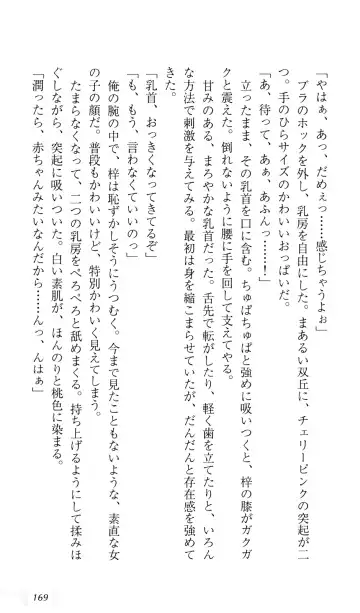 「やはぁ、あっ、だめぇっ……感じちゃうよぉ」
ブラのホックを外し、乳房を自由にした。まあるい双丘に、チェリーピンクの突起が二
つ。手のひらサイズのかわいいおっぱいだ。
「あ、待って、あぁ、あふんっ……！」
立ったまま、その乳首を口に含む。ちゅぱちゅぱと強めに吸いつくと、梓の膝がガクガ
クと震えた。倒れないように腰に手を回して支えてやる。
甘みのある、まろやかな乳首だった。舌先で転がしたり、軽く歯を立てたりと、いろん
な方法で刺激を与えてみる。最初は身を縮こまらせていたが、だんだんと存在感を強めて
きた。
「乳首、おっきくなってきてるぞ」
「も、もう、言わなくていいのっ」
俺の腕の中で、梓は恥ずかしそうにうつむく。今まで見たこともない、素直な女
の子の顔だ。普段もかわいいけど、特別かわいく見えてしまう。
たまらなくなって、二つの乳房をぺろぺろと舐めまくる。持ち上げるようにして揉みほ
ぐしながら、突起に吸いついた。白い素肌が、ほんのりと桃色に染まる。
「潤ったら、赤ちゃんみたいなんだから……んっ、んはぁ」
169